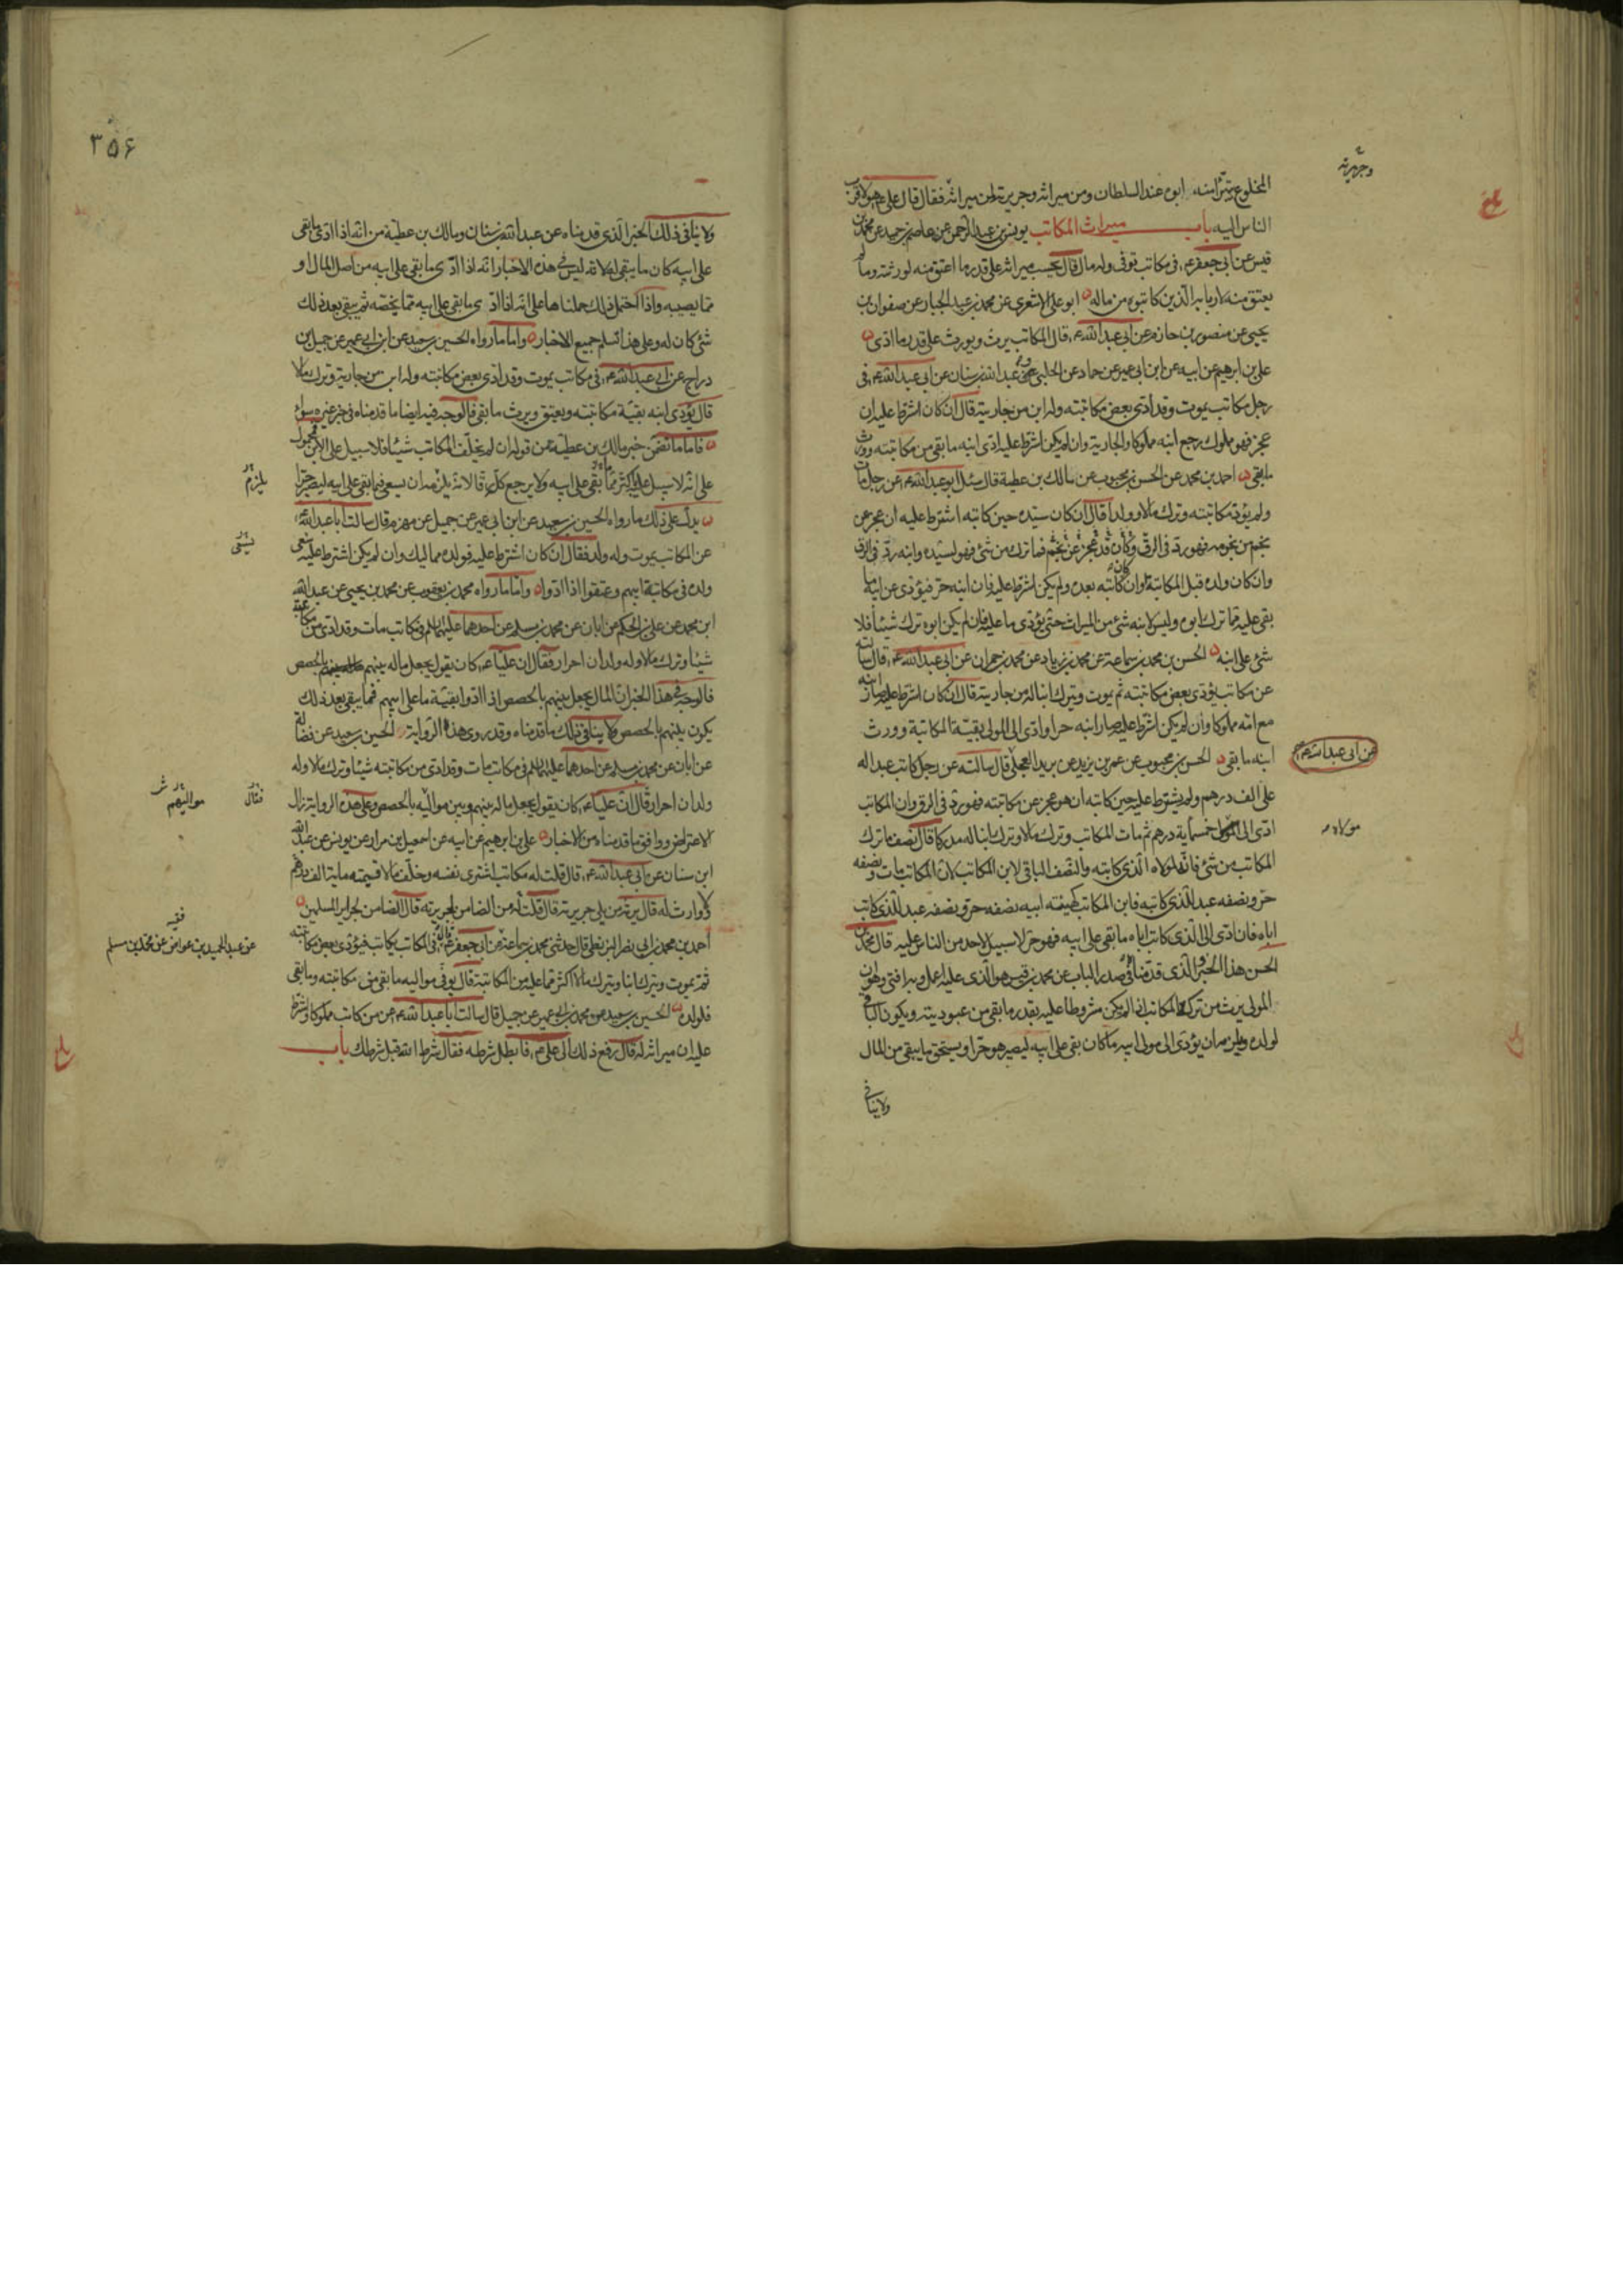 المخلوع يتبرأ منه ابوه عند السلطان ومن ميراثه وجريرته لمن ميراثه فقال قال علي ع هو لاقرب
الناس اليه باب ميراث المكاتب يونس بن عبد الرحمن عن عاصم بن حميد عن محمد بن
قيس عن ابي جعفر ع في مكاتب توفى وله مال قال يحسب ميراثه على قدر ما اعتق منه لورثته وما لم
يعتق منه لاربابه الذين كاتبوه من ماله ابو علي الاشعري عن محمد بن عبد الجبار عن صفوان بن
يحيى عن منصور بن حازم عن ابي عبد الله ع قال المكاتب يرث ويورث على قدر ما ادى
علي بن ابرهيم عن ابيه عن ابن ابي عمير عن حماد عن الحلبي وعن عبد الله بن سنان عن ابي عبد الله ع في
رجل مكاتب يموت وقد ادى بعض مكاتبته وله ابن من جاريته قال ان كان اشترط عليه ان
عجز فهو مملوك رجع ابنه مملوكا والجارية وان لم يكن اشترط عليه ادى ابنه ما بقى من مكاتبته وورث
ما بقى احمد بن محمد عن الحسن بن محبوب عن مالك بن عطية قال سئل ابو عبد الله ع عن رجل مات
ولم يؤد مكاتبته وترك مالا وولدا قال ان كان سيده حين كاتبه اشترط عليه ان عجز عن
نجم من نجومه فهو رد في الرق وكان قد عجز عن نجم فما ترك من شئ فهو لسيده وابنه رد في الرق
وان كان ولده قبل المكاتبة وان كان كاتبه بعده ولم يكن اشترط عليه فان ابنه حر فيؤدى عن ابيه ما
بقى عليه مما ترك ابوه وليس لابنه شئ من الميراث حتى يؤدى ما عليه فان لم يكن ابوه ترك شيئا فلا
شئ على ابنه الحسن بن محمد بن سماعة عن محمد بن زياد عن محمد بن حمران عن ابي عبد الله ع قال سالته
عن مكاتب يؤدى بعض مكاتبته ثم يموت ويترك ابنا له من جاريته قال ان كان اشترط عليه صار ابنه
مع امه مملوكا وان لم يكن اشترط عليه صار ابنه حرا وادى الى المولى بقية المكاتبة وورث
ابنه ما بقى الحسن بن محبوب عن عمر بن يزيد عن بريد العجلي قال سالته عن رجل كاتب عبدا له
على الف درهم ولم يشترط عليه حين كاتبه ان هو عجز عن مكاتبته فهو رد في الرق وان المكاتب
ادى الى المولى خمسماية درهم ثم مات المكاتب وترك مالا وترك ابنا له مدركا قال نصف ما ترك
المكاتب من شئ فانه لمولاه الذي كاتبه والنصف الباقي لابن المكاتب لان المكاتب مات ونصفه
حر ونصفه عبد للذي كاتبه فابن المكاتب كهيئته ابيه نصفه حر ونصفه عبد للذي كاتب
اباه فان ادى الى الذي كاتب اباه ما بقى على ابيه فهو حر لا سبيل لاحد من الناس عليه قال محمد بن
الحسن هذا الخبر والذي قدمناه في صدر الباب عن محمد بن قيس هو الذي عليه اعمل وبه افتي وهو ان
المولى يرث من تركة المكاتب اذا لم يكن مشروطا عليه بقدر ما بقى من عبوديته ويكون الباقي
لولده ويلزمه ان يؤدى الى مولى ابيه ما كان بقى على ابيه ليصير هو حرا ويستحق ما يبقى من المال
ولا ينافي
وجريرته
عن ابي عبد الله ع
مولاه
٣٥۶
ولا ينافي ذلك الخبر الذي قدمناه عن عبد الله بن سنان ومالك بن عطية من انه اذا ادى ما بقى
على ابيه كان ما يبقى له لانه ليس في هذه الاخبار انه اذا ادى ما بقى على ابيه من اصل المال او
مما يصيبه واذا احتمل ذلك حملناها على انه اذا ادى ما بقى على ابيه مما يخصه ثم يبقى بعد ذلك
شئ كان له وعلى هذا تسلم جميع الاخبار واما ما رواه الحسين بن سعيد عن ابن ابي عمير عن جميل بن
دراج عن ابي عبد الله ع في مكاتب يموت وقد ادى بعض مكاتبته وله ابن من جاريته وترك مالا
قال يؤدى ابنه بقية مكاتبته ويعتق ويرث ما بقى فالوجه فيه ايضا ما قدمناه في خبر غيره سواء
فاما ما تضمن خبر مالك بن عطية من قوله ان لم يخلف المكاتب شيئا فلا سبيل على الابن فمحمول
على انه لا سبيل عليه اكثر مما بقى على ابيه ولا يرجع كله رقا لانه يلزمه ان يسعى فيما بقى على ابيه ليصير حرا
يدل على ذلك ما رواه الحسين بن سعيد عن ابن ابي عمير عن جميل عن مهزم قال سالت ابا عبد الله ع
عن المكاتب يموت وله ولد فقال ان كان اشترط عليه فولده مماليك وان لم يكن اشترط عليه سعى
ولده في مكاتبة ابيهم وعتقوا اذا ادوا واما ما رواه محمد بن يعقوب عن محمد بن يحيى عن عبد الله
ابن محمد عن علي بن الحكم عن ابان عن محمد بن مسلم عن احدهما عليهما السلم في مكاتب مات وقد ادى من مكاتبته
شيئا وترك مالا وله ولدان احرار فقال ان عليا ع كان يقول يجعل ماله بينهم بالحصص
فالوجه في هذا الخبر ان المال يجعل بينهم بالحصص اذا ادوا بقية ما على ابيهم فما يبقى بعد ذلك
يكون بينهم بالحصص ولا ينافي ذلك ما قدمناه وقد روى هذه الرواية الحسين بن سعيد عن فضالة
عن ابان عن محمد بن مسلم عن احدهما عليهما السلم في مكاتب مات وقد ادى من مكاتبته شيئا وترك مالا وله
ولدان احرار قال ان عليا ع كان يقول يجعل ماله بينهم وبين مواليه بالحصص وعلى هذه الرواية زال
الاعتراض ووافق ما قدمناه من الاخبار علي بن ابرهيم عن ابيه عن اسمعيل بن مرار عن يونس عن عبد الله
ابن سنان عن ابي عبد الله ع قال قلت له مكاتب اشترى نفسه وخلف مالا قيمته ماية الف درهم
ولا وارث له قال يرثه من يلي جريرته قال قلت له من الضامن لجريرته قال الضامن لجراير المسلمين
احمد بن محمد بن ابي نصر البزنطي قال حدثني محمد بن سماعة عن ابي جعفر ع قال في المكاتب يكاتب فيؤدى بعض مكاتبته
ثم يموت ويترك ابنا ويترك مالا اكثر مما عليه من المكاتبة قال يوفى مواليه ما بقى من مكاتبته وما بقى
فلولده الحسين بن سعيد عن محمد بن ابي عمير عن جميل قال سالت ابا عبد الله ع عن من كاتب مملوكا واشترط
عليه ان ميراثه له قال رفع ذلك الى علي ع فابطل شرطه فقال شرط الله قبل شرطك باب
يلزم
فقال
مواليهم
فقيه
عن عبد الحميد بن عواض عن محمد بن مسلم